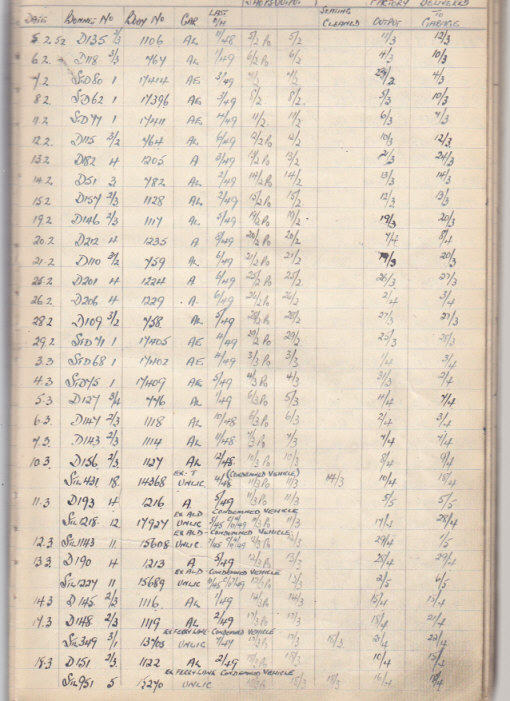 SHOPS DOCKG FACTORY DELIVERED
DATE BONNET No BODY No GAR LAST O/H SEATING CLEANED OUTPUT TO GARAGE
5.2.52 D135 2/3 1106 AL 11/48 5/2 Po 5/2 11/3 12/3
6.2 D118 2/3 767 AL 1/49 6/2 Po 6/2 4/3 10/3
7.2 StD80 1 17414 AE 3/49 7/2 29/2 4/3
8.2 StD62 1 17396 AE 3/49 8/2 8/2 5/3 10/3
11.2 StD77 1 17411 AE 4/49 11/2 11/2 6/3 7/3
12.2 D115 3/2 764 AL 6/49 12/2 Po 12/2 10/3 12/3
13.2 D182 4 1205 A 2/49 13/2 Po 13/2 21/3 24/3
14.2 D51 3 782 AL 2/49 14/2 Po 14/2 13/3 14/3
15.2 D157 2/3 1128 AL 2/49 15/2 Po 15/2 12/3 13/3
19.2 D146 2/3 1117 AL 5/49 19/2 Po 19/2 19/3 20/3
20.2 D212 4 1235 A 8/49 20/2 Po 20/2 7/4 8/4
21.2 D110 2/2 759 AL 6/49 21/2 Po 21/2 19/3 20/3
25.2 D201 4 1224 A 6/49 25/2 Po 25/2 26/3 27/3
26.2 D206 4 1229 A 6/49 26/2 Po 26/2 2/4 3/4
28.2 D109 3/2 758 AL 5/49 28/2 Po 28/2 27/3 27/3
29.2 StD71 1 17405 AE 4/49 29/2 Po 29/2 25/3 28/3
3.3 StD68 1 17402 AE 4/49 3/3 Po 3/3 1/4 3/4
4.3 StD75 1 17409 AE 5/49 4/3 Po 4/3 31/3 2/4
5.3 D127 3/4 776 AL 1/49 5/3 Po 5/3 4/4 7/4
6.3 D147 2/3 1118 AL 10/48 6/3 Po 6/3 2/4 3/4
7.3 D143 2/3 1114 AL 11/48 7/3 Po 7/3 7/4 7/4
10.3 D156 2/3 1127 AL 12/48 10/3 Po 10/3 8/4 9/4
EX. T (CONDEMNED VEHICLE)
StL431 18 14368 UNLIC 4/48 11/3 Po 11/3 14/3 10/4 15/4
11.3 D193 4 1216 A 5/49 11/3 Po 11/3 5/5 5/5
EX ALD CONDEMNED VEHICLE
StL218 12 17927 UNLIC 11/3 17/4 28/4
EX ALD CONDEMNED VEHICLE
12.3 StL1143 11 15608 UNLIC 29/4 1/5
13.3 D190 4 1213 A 5/49 12/3 Po 13/3 28/4 29/4
EX ALD CONDEMNED VEHICLE
StL1227 11 15689 UNLIC 13/3 2/5 6/5
14.3 D145 2/3 1116 AL 1/49 14/3 Po 14/3 15/4 15/4
17.3 D148 2/3 1119 AL 2/49 17/3 Po 17/3 18/4 21/4
EX FERRY LANE CONDEMNED VEHICLE
StL349 3/1 13705 UNLIC 7/47 17/3 18/3 21/4 22/4
18.3 D151 2/3 1122 AL 2/49 18/3 Po 18/3 10/4 15/4
EX FERRY LANE CONDEMNED VEHICLE
StL951 5 15270 UNLIC 18/3 16/4 18/4